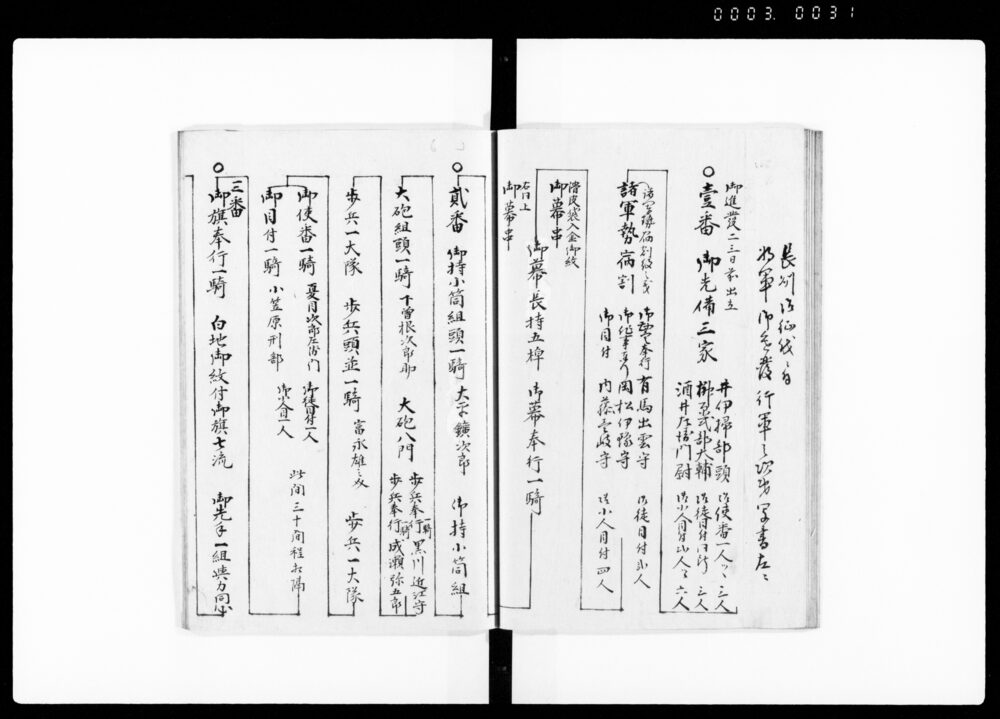 0003. 0031
長州御征伐ニ付
将軍御進發行軍之次第写書左ニ
御進發二三日前出立
壹番 御先備三家
井伊掃部頭 御使番一人ツヽ 三人
榊原式部大輔 御徒目付同断 三人
酒井左衛門尉 御小人目付弐人ツヽ 六人
諸軍勢病割
御勘定奉行 有馬出雲守 御徒目付弐人
岡松伊豫守
御目付 内藤壱岐守 御小人目付四人
滑皮袋入金御紋
御幕串
御幕長持五棹 御幕奉行一騎
右同上
御幕串
貳番 御持小筒組頭一騎 大平鐄次郎 御持小筒組
大砲組頭一騎 下曽根次郎助 大砲八門
歩兵奉行一騎 黒川近江守
歩兵奉行一騎 成瀬弥五郎
歩兵一大隊 歩兵頭並一騎 富永雄之 歩兵一大隊
御使番一騎 夏目次郎左衛門 御徒目付一人
御目付一騎 小笠原刑部 御小人目一人
此間三十間程相隔
三番
御旗奉行一騎 白地御紋付御旗七流 御先手一組與力同心